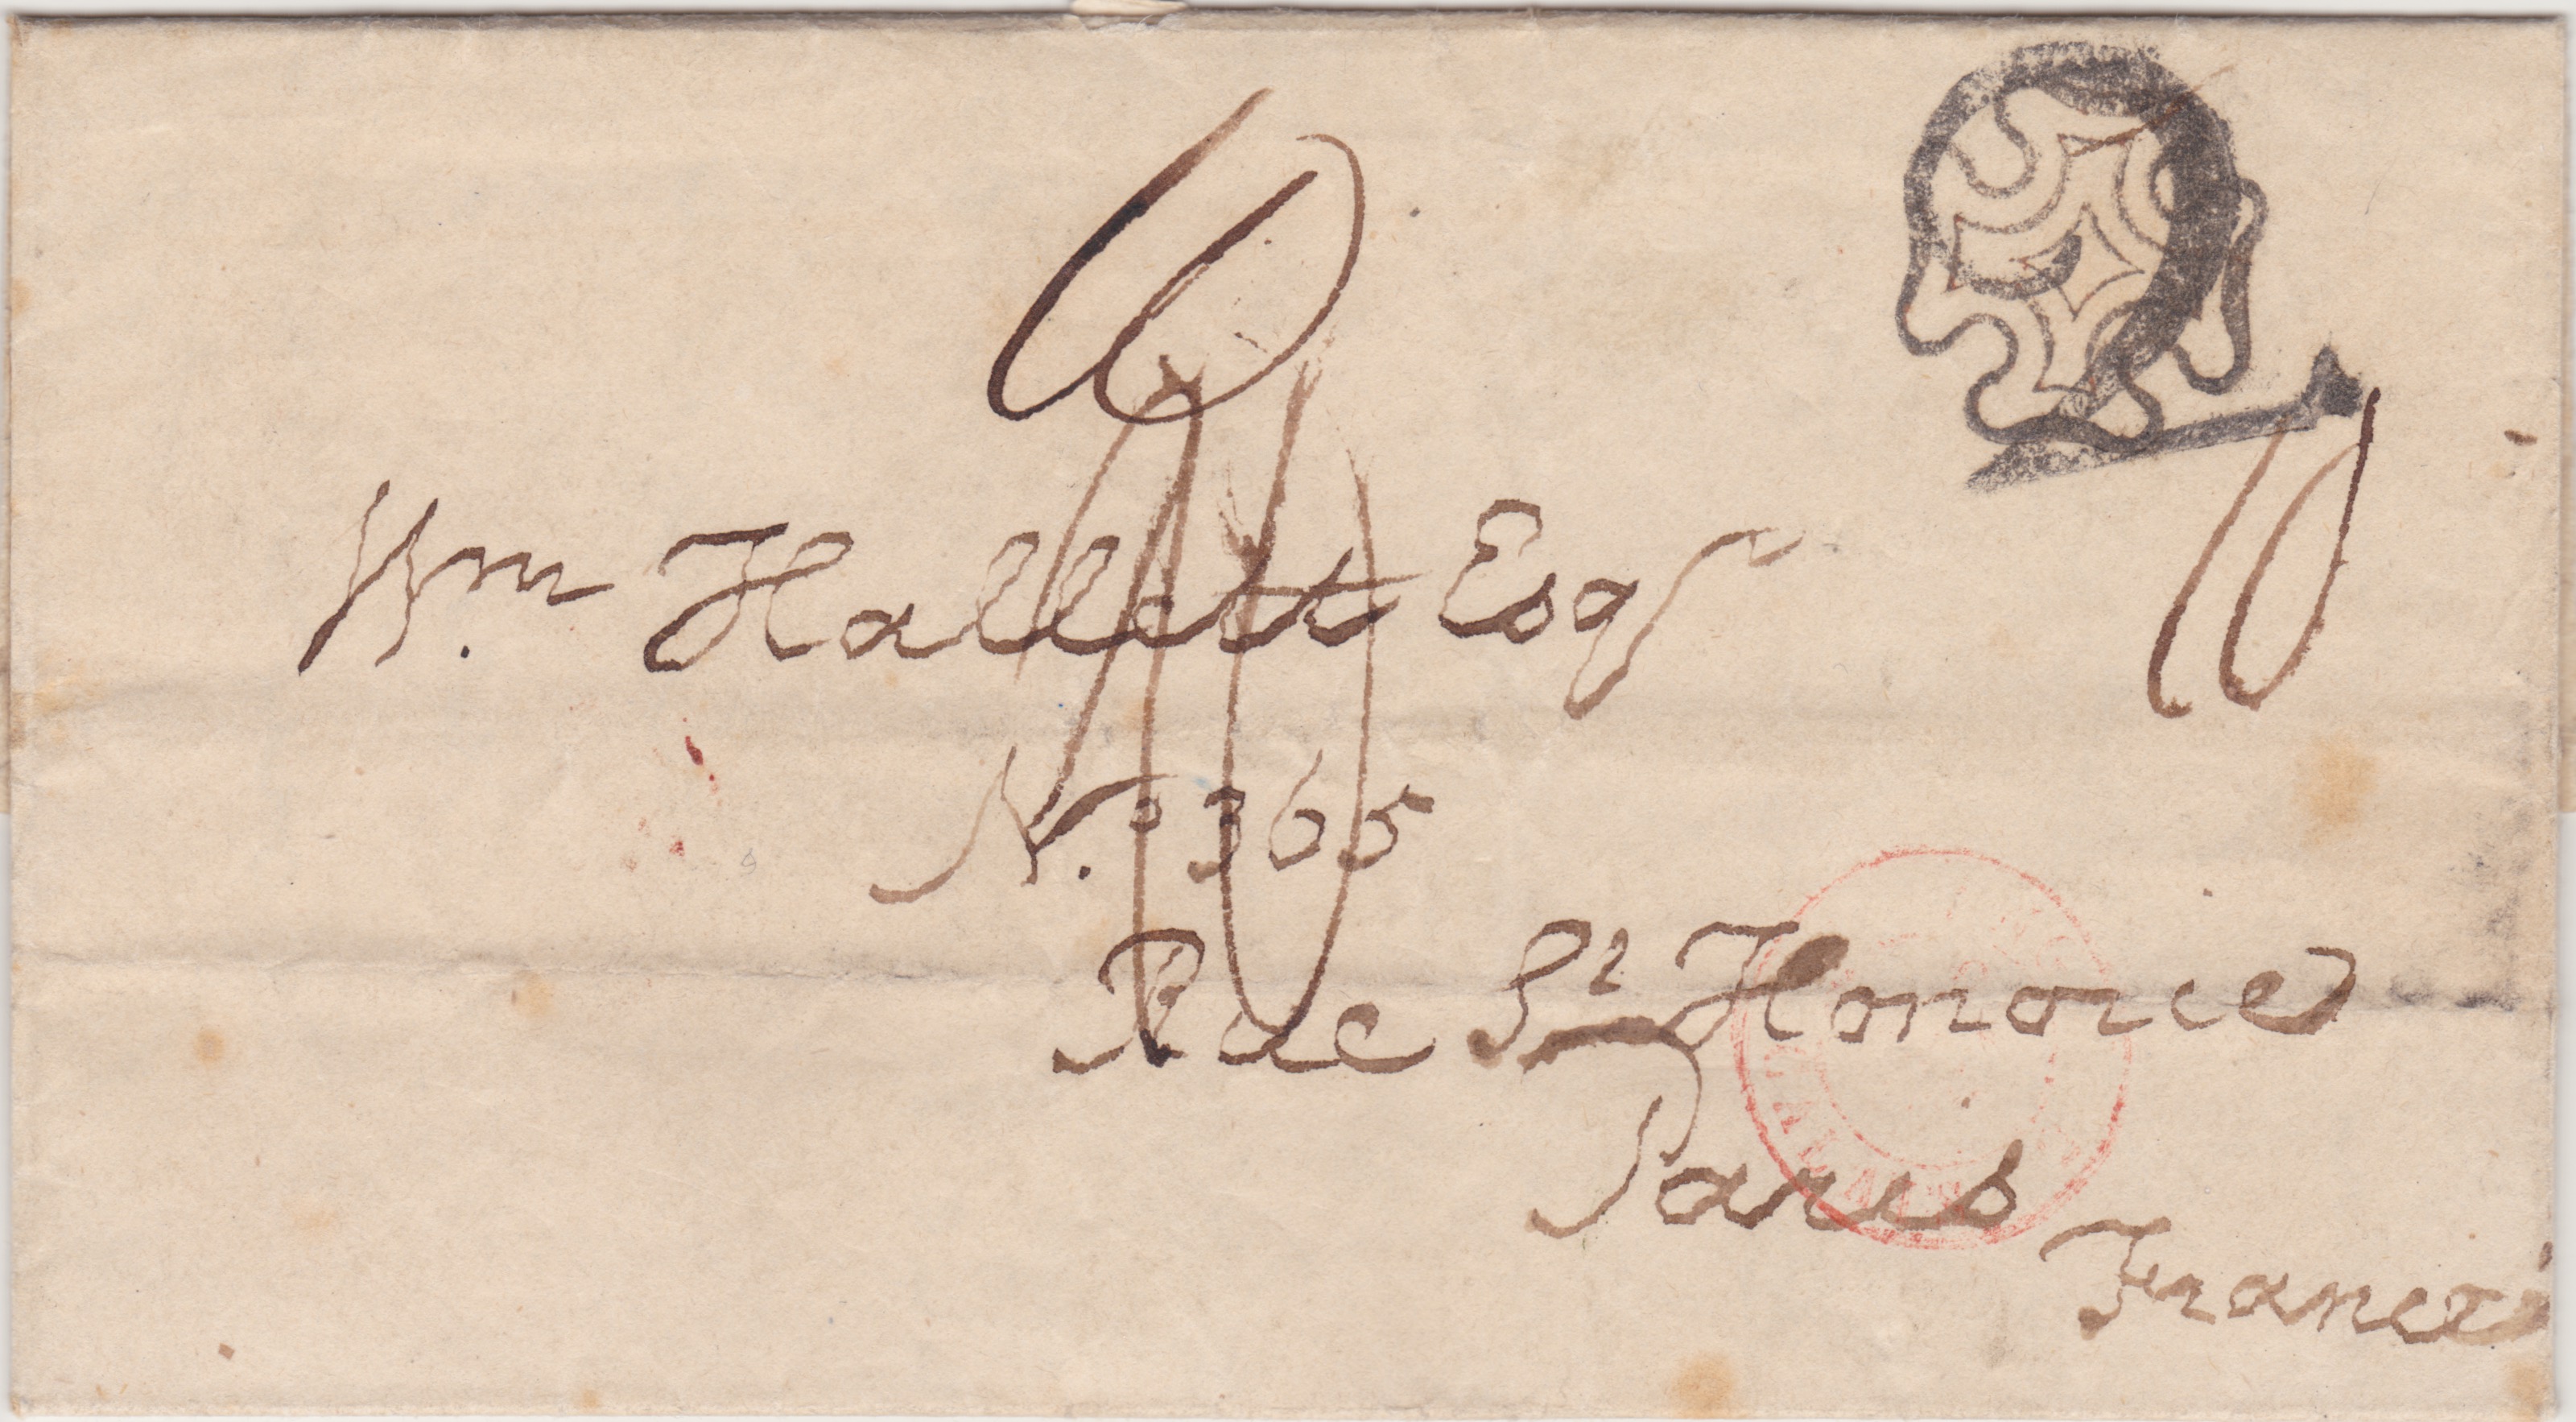 10
Wm. Hallett Esqr
No. 365
Rue St. Honoree
Paris
France